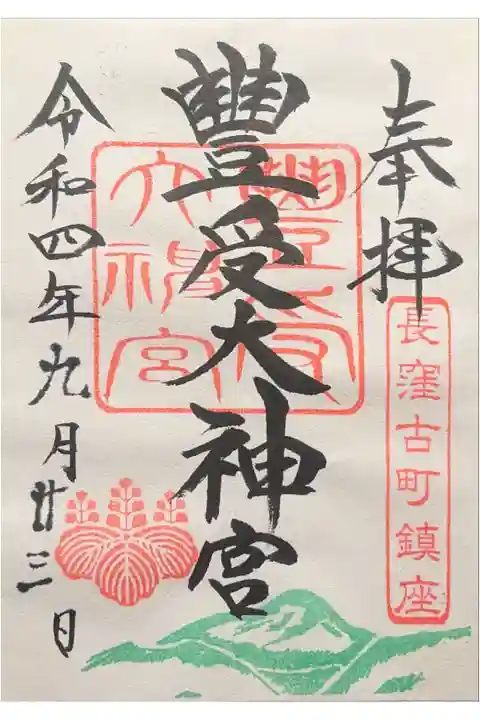 奉拝
長窪古町鎮座
豐受大神宮
豐受
大神宮
令和四年九月廿三日